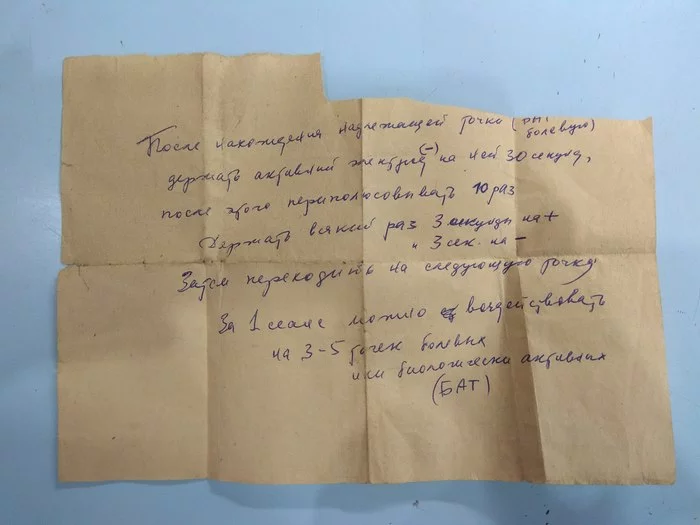 После нахождения надлежащей точки (
болевую)
держать активный электрод (-) на ней 30 секунд,
после этого переполюсовывать 10 раз
Держать всякий раз 3 секунды на +
" 3 сек. на -
Затем переходить на следующую точку
За 1 сеанс можно воздействовать
на 3-5 точек болевых
или биологически активных
(БАТ)